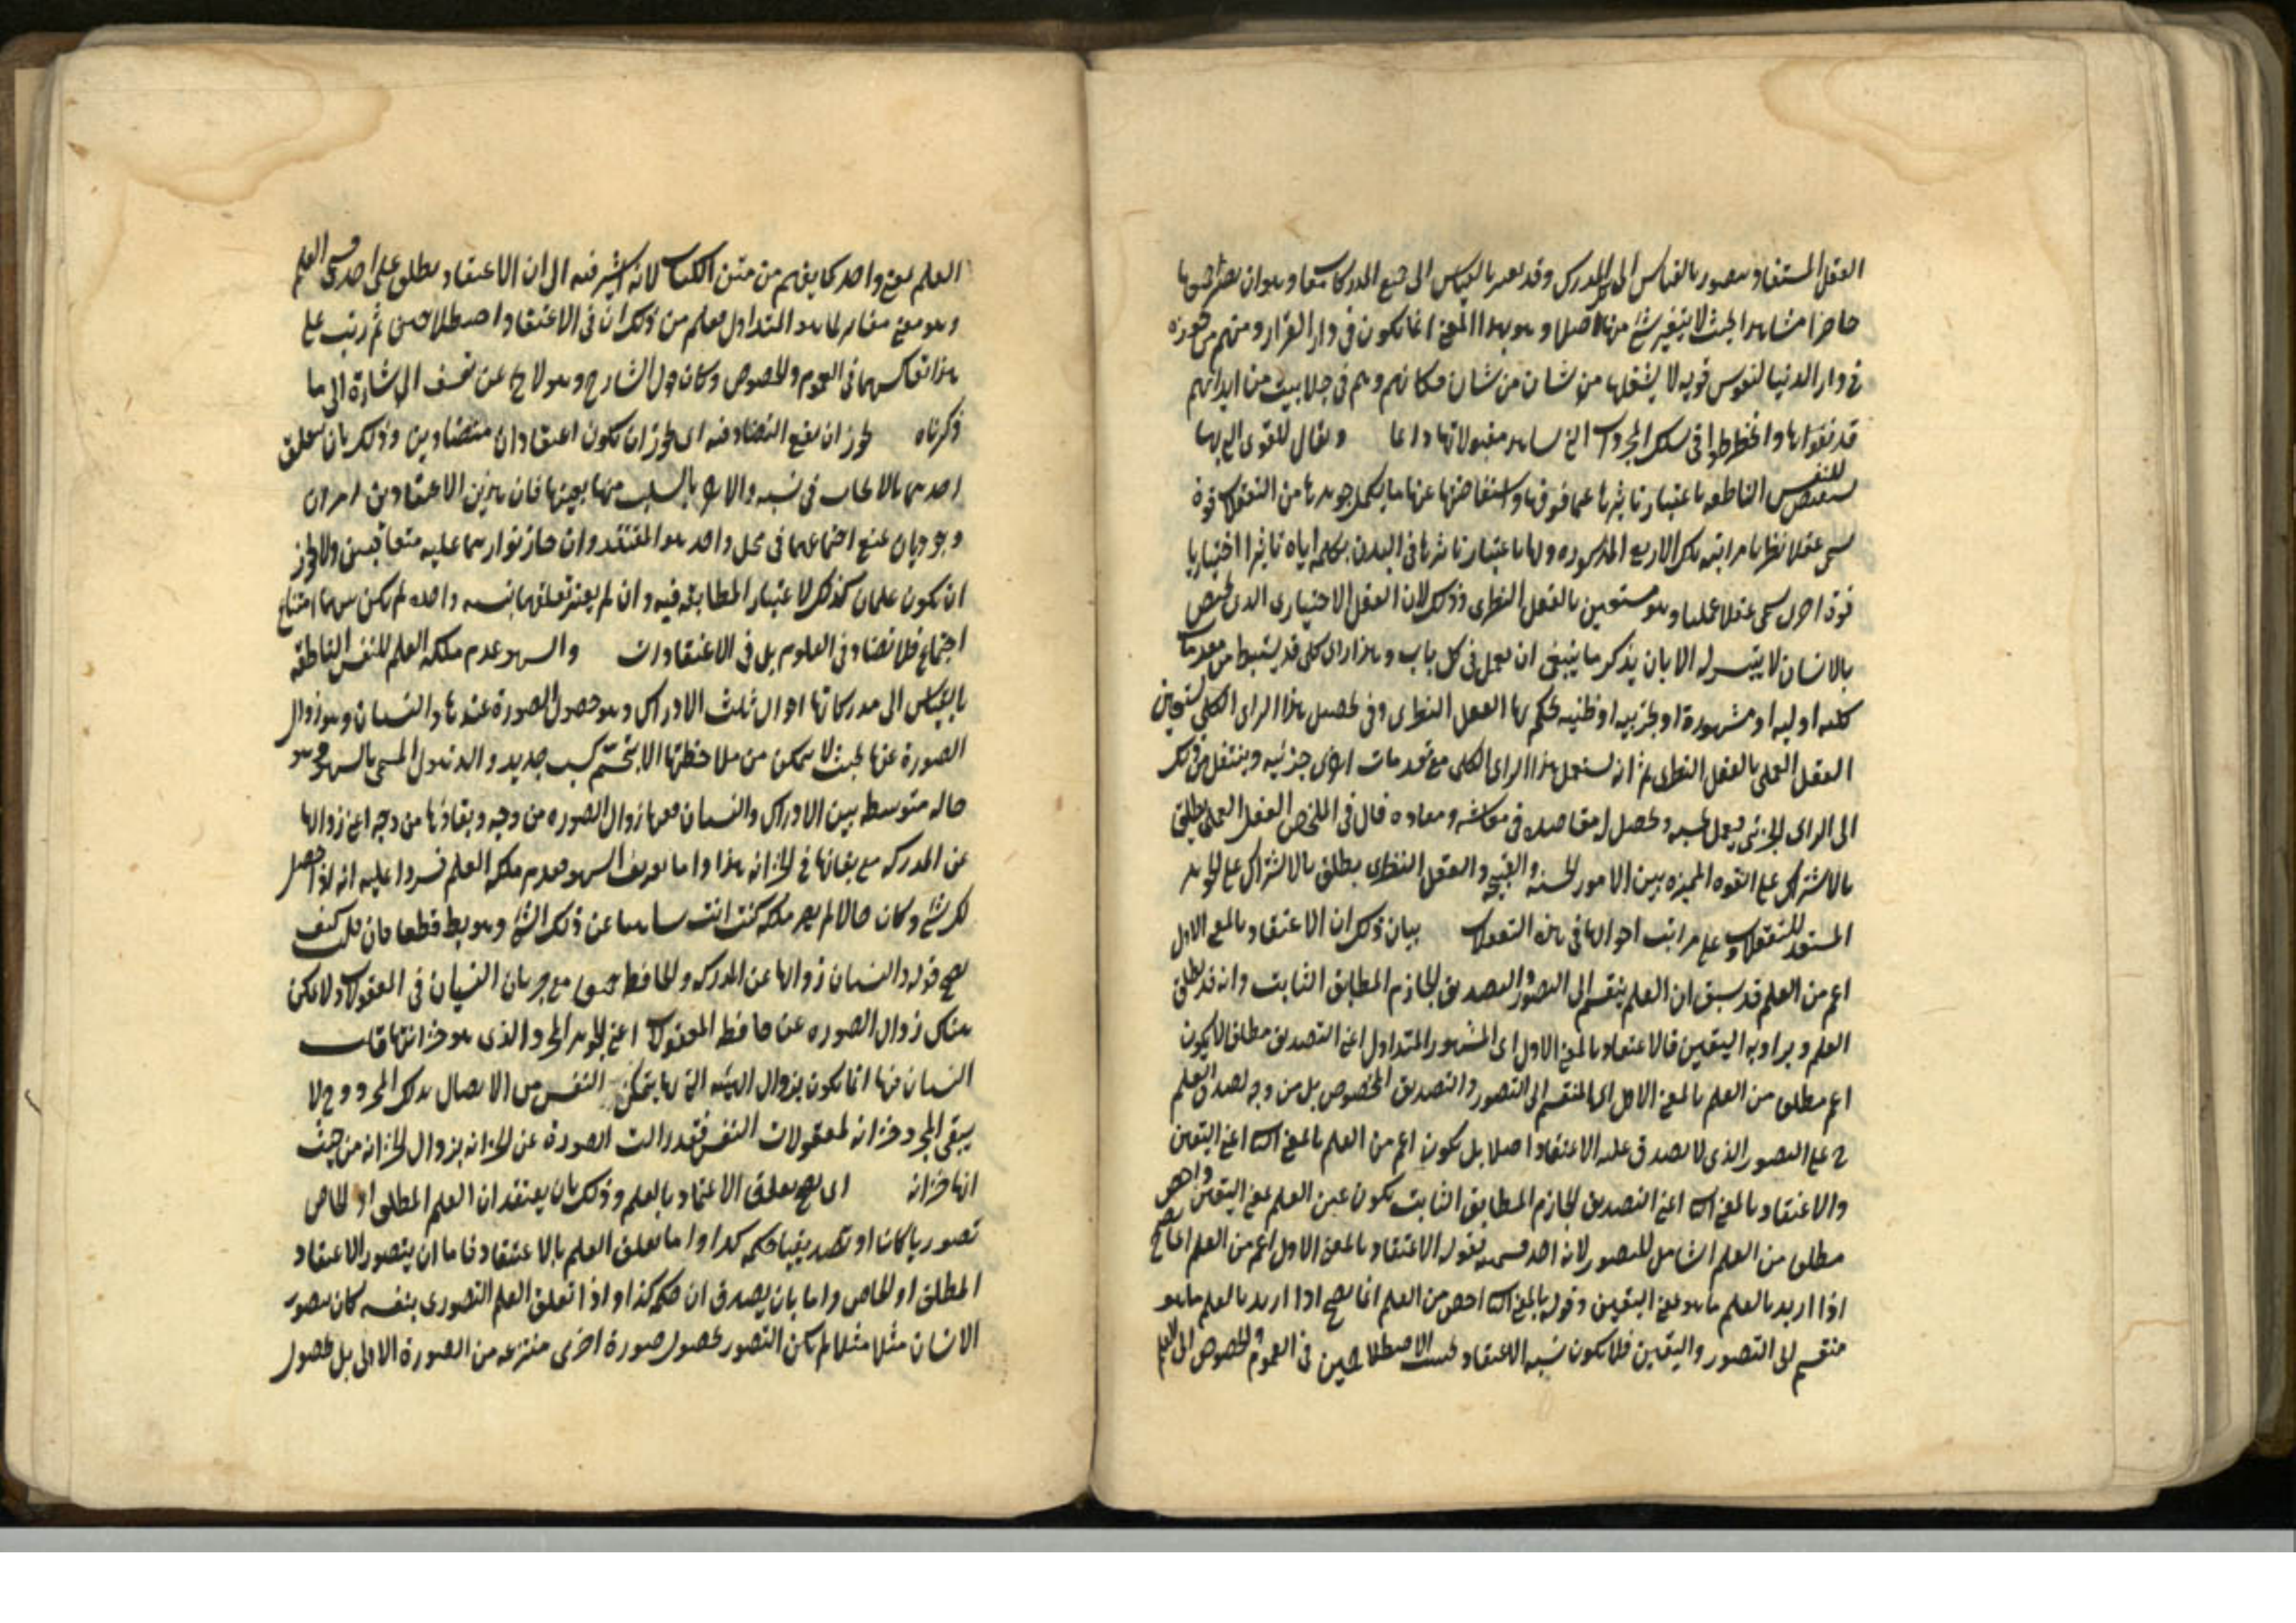 العقل المستفاد يتصور بالقياس الى كل مدرك وقد يعتبر بالقياس الى جميع المدركات معا وهو ان يصير جميعها
حاضرا مشاهدا بحيث لا يتغير شئ منها اصلا وهو بهذا المعنى انما يكون فى دار القرار ومنهم من جوزه
فى دار الدنيا لنفوس قوية لا يشغلها من شان من شان فكانهم وهم فى جلابيب من ابدانهم
قد نفضوها وانخرطوا فى سلك المجردات التى تشاهد معقولاتها دائما ويقال للقوى التى بها
للنفس الناطقة باعتبار تاثرها عما فوقها واستفاضتها عنها ما يكمل جوهرها من التعقلات قوة
تسمى عقلا نظريا مراتبه تلك الاربع المذكورة ولها باعتبار تاثيرها فى البدن مكملة اياه تاثيرا اختياريا
قوة اخرى تسمى عقلا عمليا وهو يستعين بالعقل النظرى وذلك لان العقل الاختيارى الذى يختص
بالانسان لا يتيسر له الا بان يذكر ما ينبغى ان يعمل فى كل باب وهذا راى كلى قد يستنبط من مقدمات
كلية اولية او مشهورة او تجربية او ظنية يحكم بها العقل النظرى وفى تحصيل هذا الراى الكلى يستعين
العقل العملى بالعقل النظرى ثم انه يستعمل هذا الراى الكلى مع مقدمات اخرى جزئية وينتقل من ذلك
الى الراى الجزئى فيعمل بحسبه ويحصل له مقاصده فى معاشه ومعاده قال فى الملخص العقل العملى يطلق
بالاشتراك على القوة المميزة بين الامور الحسنة والقبيحة والعقل النظرى يطلق بالاشتراك على الجوهر
المستعد للتعقلات وعلى مراتب احوالها فى هذه التعقلات بيان ذلك ان الاعتقاد بالمعنى الاول
اعم من العلم قد سبق ان العلم ينقسم الى التصور والتصديق الجازم المطابق الثابت وانه قد يطلق
العلم ويراد به اليقين فالاعتقاد بالمعنى الاول اى المشهور المتداول اعنى التصديق مطلقا لا يكون
اعم مطلقا من العلم بالمعنى الاول اى المنقسم الى التصور والتصديق المخصوص بل من وجه لصدق العلم
ح على التصور الذى لا يصدق عليه الاعتقاد اصلا بل يكون اعم من العلم بالمعنى الثانى اعنى اليقين
والاعتقاد بالمعنى الثانى اعنى التصديق الجازم المطابق الثابت يكون عين العلم بمعنى اليقين واخص
مطلقا من العلم الشامل للتصور لانه احد قسميه فقوله الاعتقاد بالمعنى الاول اعم من العلم انما يصح
اذا اريد بالعلم ما هو بمعنى اليقين وقوله بالمعنى الثانى اخص من العلم انما يصح اذا اريد بالعلم ما هو
منقسم الى التصور واليقين فلا يكون نسبة الاعتقاد بحسب الاصطلاحين فى العموم والخصوص الى العلم
العلم بمعنى واحد كما يفهم من متن الكتاب لانه اشير فيه الى ان الاعتقاد يطلق على احد قسمى العلم
وهو معنى مغاير لما هو المتداول فعلم من ذلك ان فى الاعتقاد اصطلاحين ثم رتب على
هذا تعاكسهما فى العموم والخصوص وكان قول الشارح وهو لا يخ عن تعسف الى اشارة الى ما
ذكرناه يجوز ان يقع التضاد فيه اى يجوز ان يكون اعتقادان متضادين وذلك بان يتعلق
احدهما بالايجاب فى نسبة والاخر بالسلب فيها بعينها فان هذين الاعتقادين امران
وجوديان يمتنع اجتماعهما فى محل واحد هو المعتقد وان جاز تواردهما عليه متعاقبين ولا يجوز
ان يكون علمان كذلك لاعتبار المطابقة فيه وان لم يعتبر تعلقهما بنسبة واحدة لم يكن بينهما امتناع
اجتماع فلا تضاد فى العلوم بل فى الاعتقادات والسهو عدم ملكة العلم للنفس الناطقة
بالقياس الى مدركاتها احوال ثلث الادراك وهو حصول الصورة عندها والنسيان وهو زوال
الصورة عنها بحيث لا يتمكن من ملاحظتها الا بتجشم كسب جديد والذهول المسمى بالسهو وهو
حالة متوسطة بين الادراك والنسيان ففيها زوال الصورة من وجه وبقاؤها من وجه اعنى زوالها
عن المدركة مع بقائها فى الخزانة هذا واما تعريف السهو بعدم ملكة العلم فيرد عليه انه اذا حصل
لك شئ وكان حالا لم يصر ملكة كنت انت ساهيا عن ذلك الشئ وهو بط قطعا فان قلت كيف
يصح قوله والنسيان زوالها عن المدركة والحافظة جميعا مع جريان النسيان فى المعقولات ولا يمكن
هناك زوال الصورة عن حافظ المعقولات اعنى الجوهر المجرد الذى هو خزانتها قلت
النسيان فيها انما يكون بزوال الهيئة التى بها يتمكن النفس من الاتصال بذلك المجرد وح لا
يبقى المجرد خزانة لمعقولات النفس فقد زالت الصورة عن الخزانة بزوال الخزانة من حيث
انها خزانة اى يصح تعلق الاعتقاد بالعلم وذلك بان يعتقد ان العلم المطلق او الخاص
تصوريا كان او تصديقيا حكمه كذا واما تعلق العلم بالاعتقاد فاما ان يتصور الاعتقاد
المطلق او الخاص واما بان يصدق ان حكمه كذا واذا تعلق العلم التصورى بنفسه كان يتصور
الانسان مثلا مثلا لم يكن التصور بحصول صورة اخرى منتزعة من الصورة الاولى بل بحصول